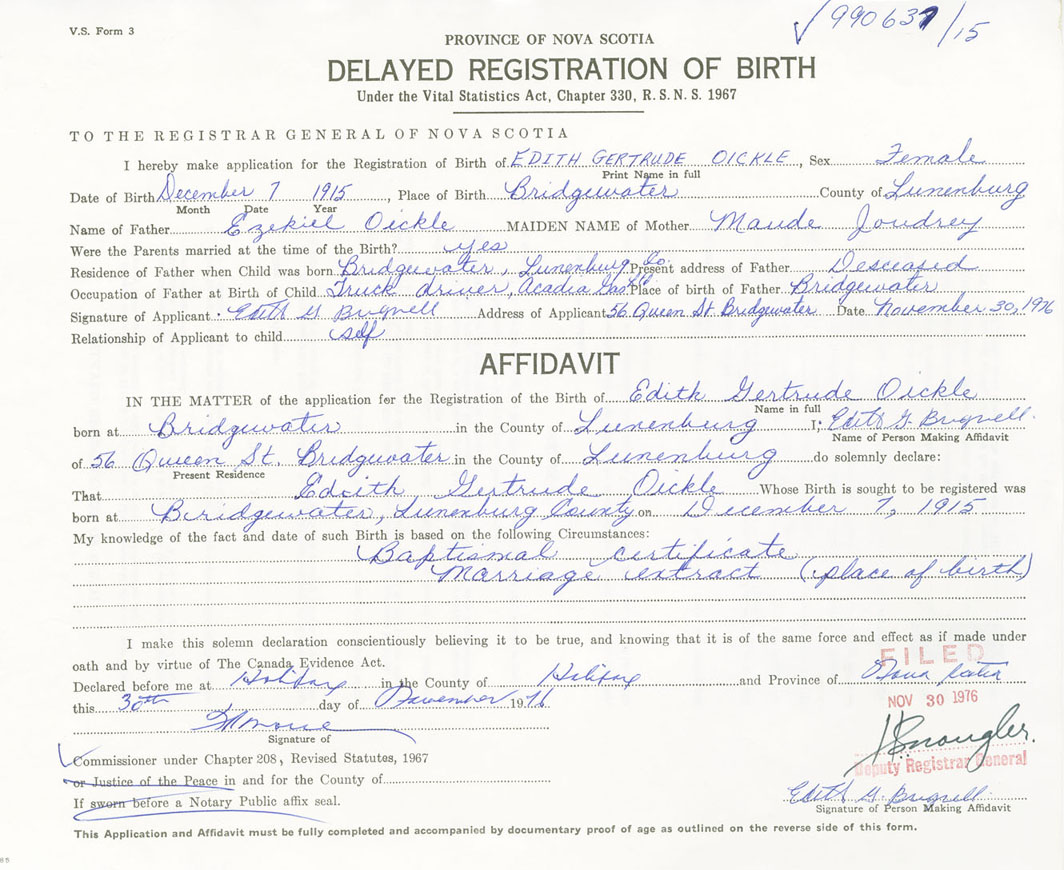 V.S. Form 3
990637/15
PROVINCE OF NOVA SCOTIA
DELAYED REGISTRATION OF BIRTH
Under the Vital Statistics Act, Chapter 330, R.S.N.S. 1967
TO THE REGISTRAR GENERAL OF NOVA SCOTIA
I hereby make application for the Registration of Birth of EDITH GERTRUDE OICKLE, Sex Female
Print Name in full
Date of Birth December 7 1915, Place of Birth Bridgewater County of Lunenburg
Month Date Year
Name of Father Ezekiel Oickle MAIDEN NAME of Mother Maude Joudrey
Were the Parents married at the time of the Birth? yes
Residence of Father when Child was born Bridgewater, Lunenburg Co. Present address of Father Desceased
Occupation of Father at Birth of Child Truck driver, Acadia Gas Place of birth of Father Bridgewater
Signature of Applicant Edith G Bugnell Address of Applicant 56 Queen St. Bridgewater Date November 30, 1976
Relationship of Applicant to child self
AFFIDAVIT
IN THE MATTER of the application for the Registration of the Birth of Edith Gertrude Oickle
Name in full
born at Bridgewater in the County of Lunenburg I, Edith G. Bugnell
Name of Person Making Affidavit
of 56 Queen St. Bridgewater in the County of Lunenburg do solemnly declare:
Present Residence
That Edith Gertrude Oickle Whose Birth is sought to be registered was
born at Bridgewater, Lunenburg County on December 7, 1915
My knowledge of the fact and date of such Birth is based on the following Circumstances:
Baptismal certificate
Marriage extract (place of birth)
I make this solemn declaration conscientiously believing it to be true, and knowing that it is of the same force and effect as if made under
oath and by virtue of The Canada Evidence Act.
FILED
Declared before me at Halifax in the County of Halifax and Province of Nova Scotia
this 30th day of November 1976
NOV 30 1976
Signature of
Commissioner under Chapter 208, Revised Statutes, 1967
or Justice of the Peace in and for the County of
Deputy Registrar General
If sworn before a Notary Public affix seal.
Edith G. Bugnell
Signature of Person Making Affidavit
This Application and Affidavit must be fully completed and accompanied by documentary proof of age as outlined on the reverse side of this form.
85